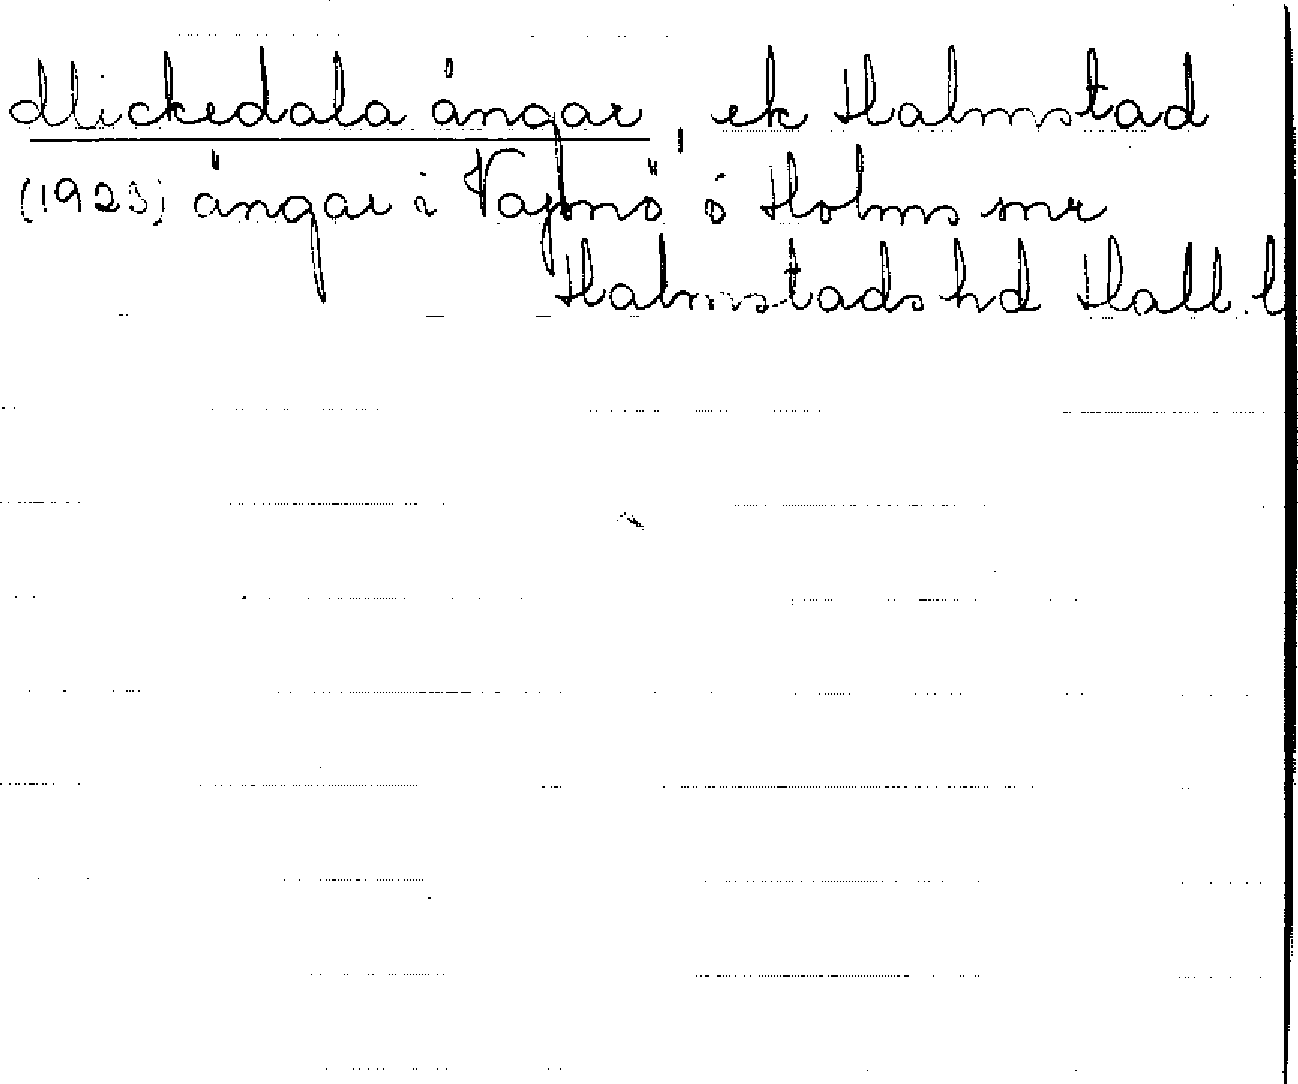 Mickedala ängar, ek Halmstad
(1923) ängar i Vapnö o Holms snr
Halmstads hd Hall. l